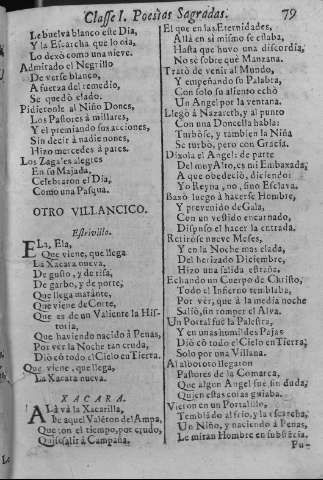 Classe I. Poesias Sagradas. 79
Le buelva blanco este Dia,
Y la Escarcha que lo oìa,
Lo dexò como una nieve.
Admirado el Negrillo
De verse blanco,
A fuerza del remedio,
Se quedò elado.
Pidieronle al Niño Dones,
Los Pastores à millares,
Y el premiando sus acciones,
Sin decir à nadie nones,
Hizo mercedes à pares.
Los Zagales alegres
En su Majada,
Celebraron el Dia,
Como una Pasqua.
OTRO VILLANCICO.
Estrivillo.
ELa, Ela,
Que viene, que llega
La Xacara nueva,
De gusto, y de risa,
De garbo, y de porte,
Que llega matante,
Que viene de Corte,
Que es de un Valiente la His-
toria,
Que haviendo nacido à Penas,
Por vèr la Noche tan cruda,
Diò cõ todo el Cielo en Tierra.
Que viene, que llega,
La Xacara nueva.
XACARA.
ALà và la Xacarilla,
De aquel Valẽton del Ampa,
Que con el tiempo, por crudo,
Quiso salir à Campaña,
El que en las Eternidades,
Allà en sì mismo se estaba,
Hasta que huvo una discordia,
No sè sobre què Manzana.
Tratò de venir al Mundo,
Y empeñando su Palabra,
Con solo su aliento echò
Un Angel por la ventana.
Llegò à Nazareth, y al punto
Con una Doncella habla:
Turbòse, y tambien la Niña
Se turbò, pero con Gracia.
Dixola el Angel: de parte
Del muy Alto, es mi Embaxada,
A que obedeciò, diciendo:
Yo Reyna, no, sino Esclava.
Baxò luego à hacerse Hombre,
Y prevenido de Gala,
Con un vestido encarnado,
Dispuso el hacer la entrada.
Retiròse nueve Meses,
Y en la Noche mas elada,
Del herizado Diciembre,
Hizo una salida estraña.
Echando un Cuerpo de Christo,
Todo el Infierno temblaba,
Por vèr, que à la media noche
Saliò, sin romper el Alva.
Un Portal fue la Palestra,
Y en unas humildes Pajas
Diò cõ todo el Cielo en Tierra,
Solo por una Villana.
Al alboroto llegaron
Pastores de la Comarca,
Que algun Angel fue, sin duda,
Quien estas cosas guiaba.
Vieron en un Portalillo,
Temblãdo al frio, y la escarcha,
Un Niño, y naciendo à Penas,
Le miran Hombre en substãcia.
Pu-